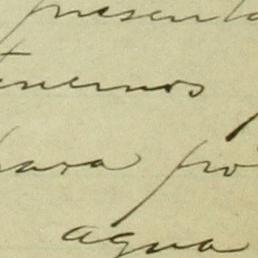 presenta
tenemos
para pro
agua